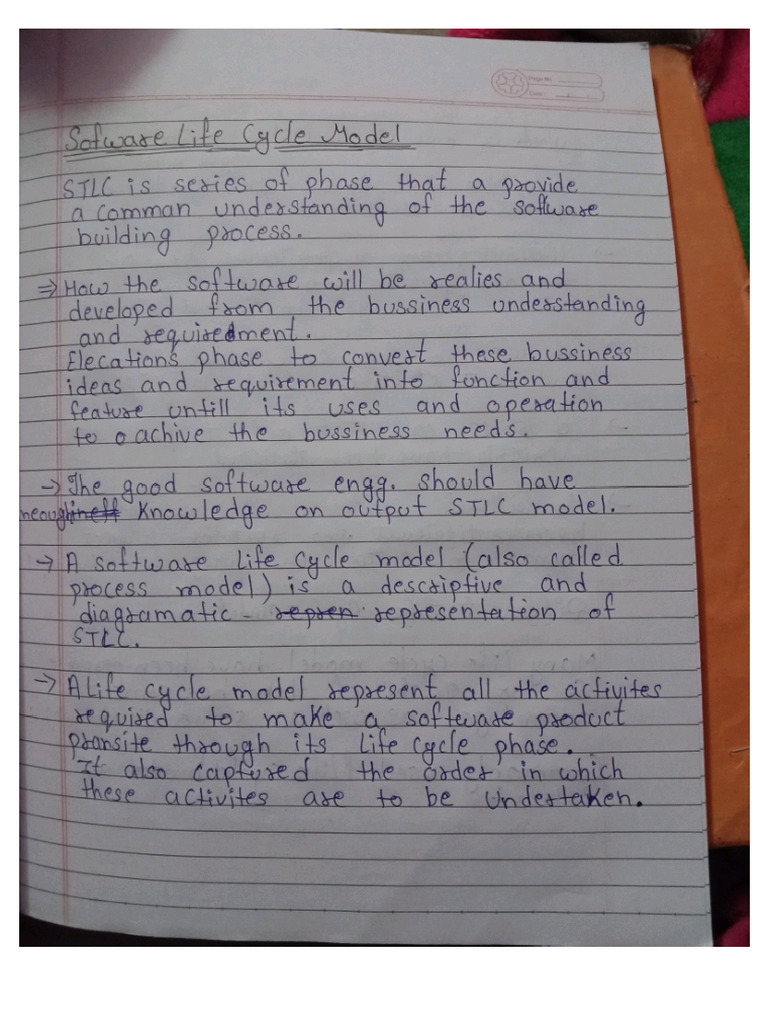 Page No.
Date
Sofware Life Cycle Model
STLC is series of phase that a provide
a comman understanding of the software
building process.
⇒ How the software will be realies and
developed from the bussiness understanding
and requirement.
Elecations phase to convert these bussiness
ideas and requirement into function and
feature untill its uses and operation
to achive the bussiness needs.
→ The good software engg. should have
neough knowledge on output STLC model.
→ A software life cycle model (also called
process model) is a descriptive and
diagramatic - repren representation of
STLC.
→ A Life cycle model represent all the activites
required to make a software product
pransite through its life cycle phase.
It also captured the order in which
these activites are to be undertaken.